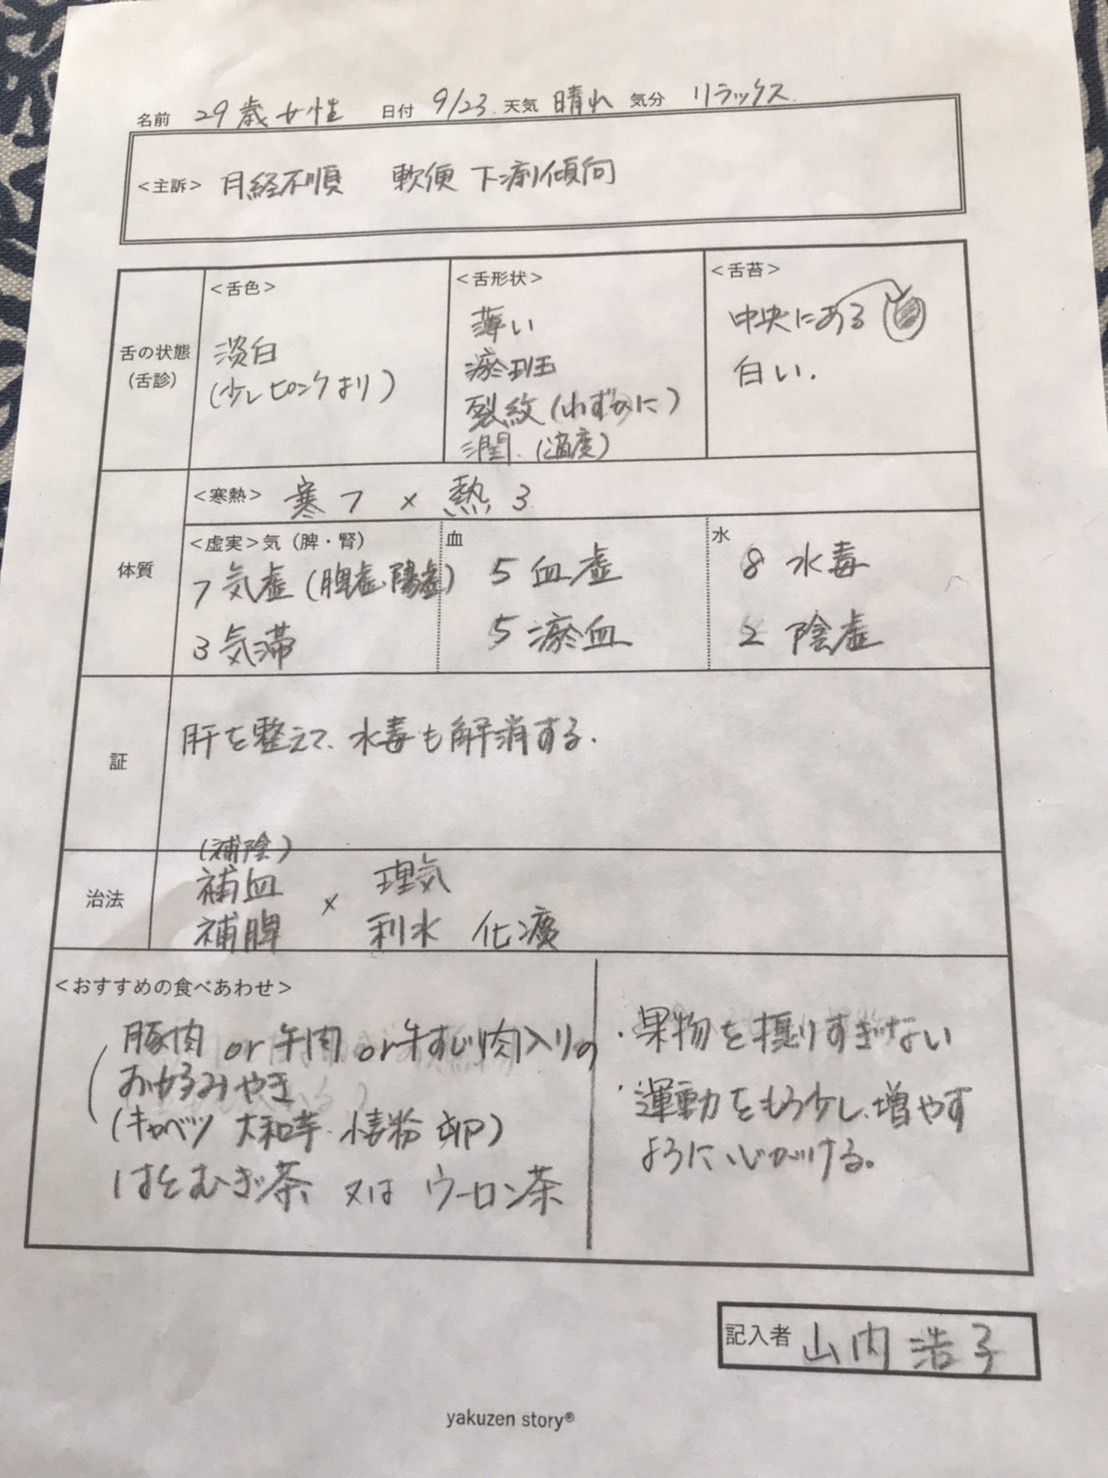 名前 29歳女性 日付 9/23. 天気 晴れ 気分 リラックス.
<主訴> 月経不順 軟便 下痢傾向
舌の状態
(舌診)
<舌色>
淡白
(少しピンクより)
<舌形状>
薄い
瘀斑
裂紋(わずかに)
潤.(適度)
<舌苔>
中央にある
白い.
体質
<寒熱> 寒7 × 熱3
<虚実>気(脾・腎)
7 気虚(脾虚.陽虚)
3 気滞
血
5 血虚
5 瘀血
水
8 水毒
2 陰虚
証
肝を整えて、水毒も解消する.
治法
(補陰)
補血 × 理気
補脾 利水 化瘀
<おすすめの食べあわせ>
豚肉 or 牛肉 or 牛すじ肉入りの
お好みやき
(キャベツ 大和芋.小麦粉 卵)
はとむぎ茶 又は ウーロン茶
・果物を摂りすぎない
・運動をもう少し増やす
ように心がける。
記入者 山内 浩子
yakuzen story®